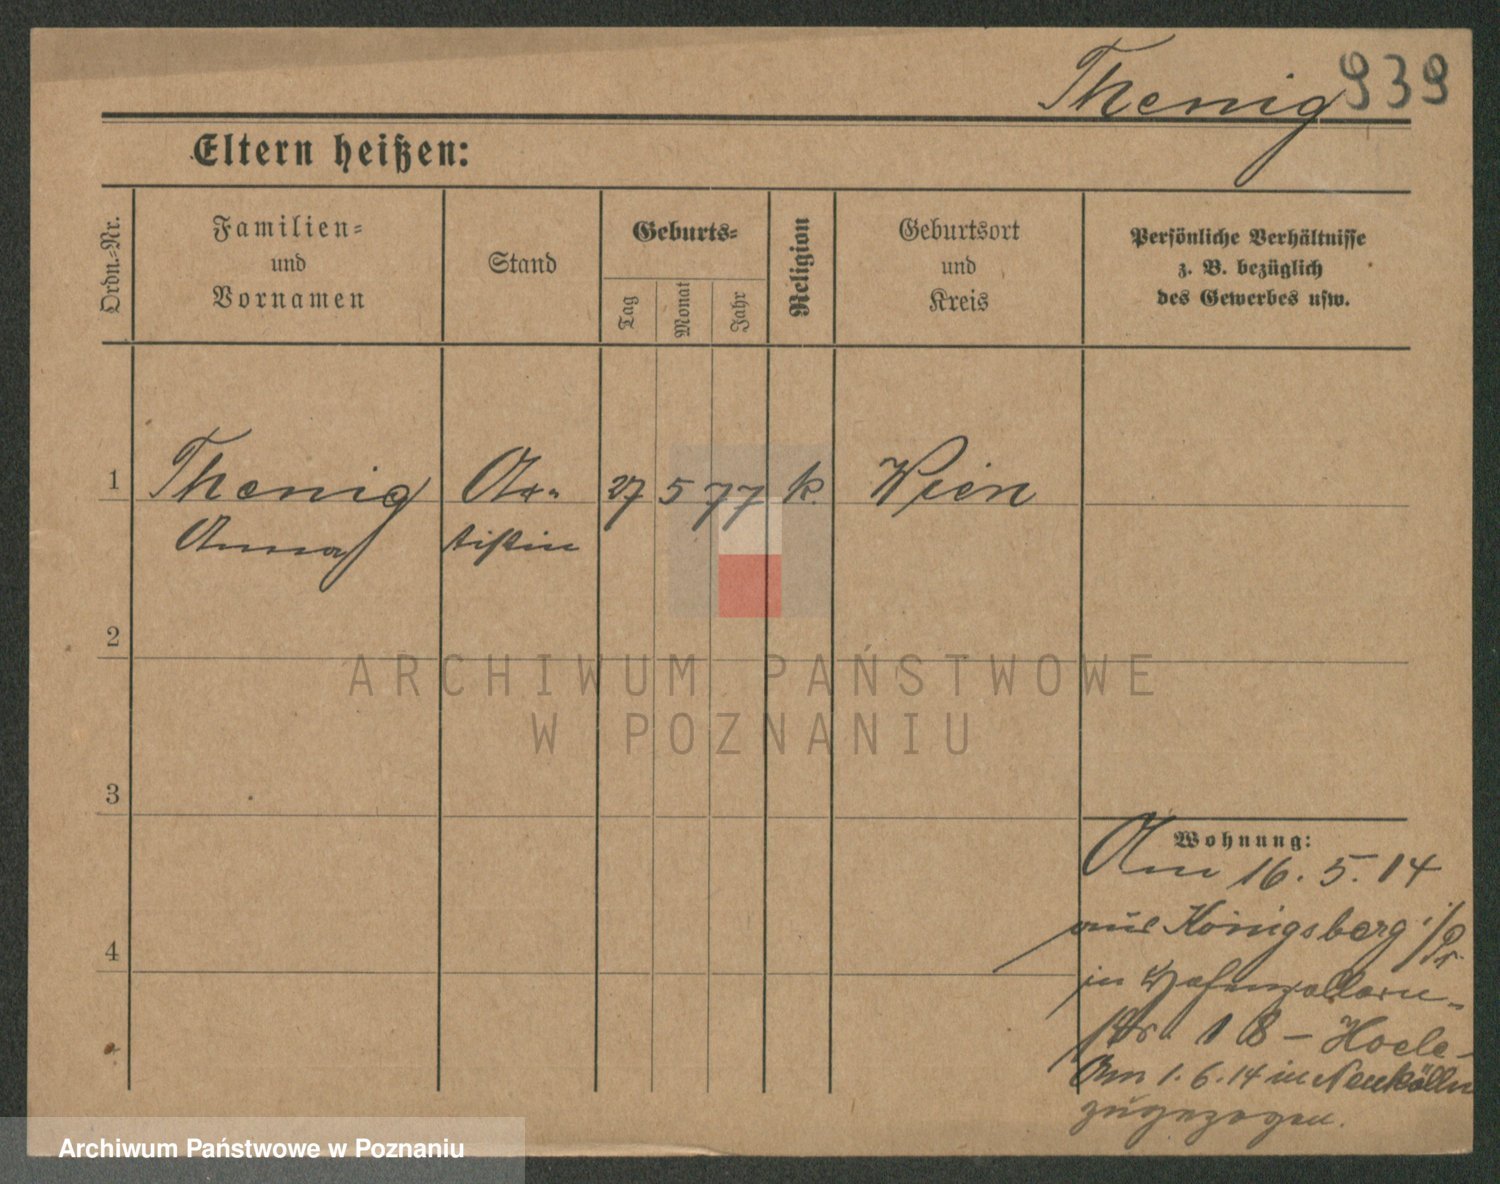 Thenig 939
Eltern heißen:
Ordn.-Nr.
Familien-
und
Vornamen
Stand
Geburts-
Tag
Monat
Jahr
Religion
Geburtsort
und
Kreis
Persönliche Verhältnisse
z. B. bezüglich
des Gewerbes usw.
1 Thenig Ar- 27 5 77 k. Wien
Anna tistin
2
3
4
Wohnung:
Am 16. 5. 14
aus Königsberg i/Pr.
in Hohenzollern-
str. 18 - Hoele-
Am 1. 6. 14 in Neukölln
zugezogen.
ARCHIWUM PAŃSTWOWE
W POZNANIU
Archiwum Państwowe w Poznaniu